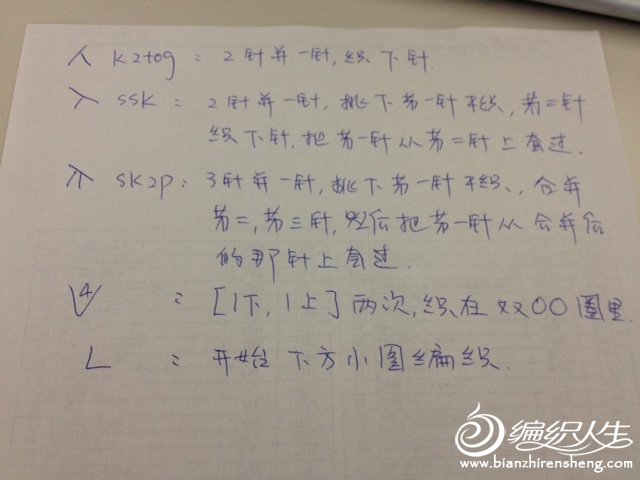 人 k2tog : 2针并一针,织下针
入 ssk : 2针并一针,挑下第一针不织,第二针
织下针,把第一针从第二针上套过.
sk2p: 3针并一针,挑下第一针不织,合并
第二,第三针,然后把第一针从合并后
的那针上套过.
4 V : [1下,1上]两次,织在双00圈里.
L : 开始下方小图编织.
编织人生
www.bianzhirensheng.com